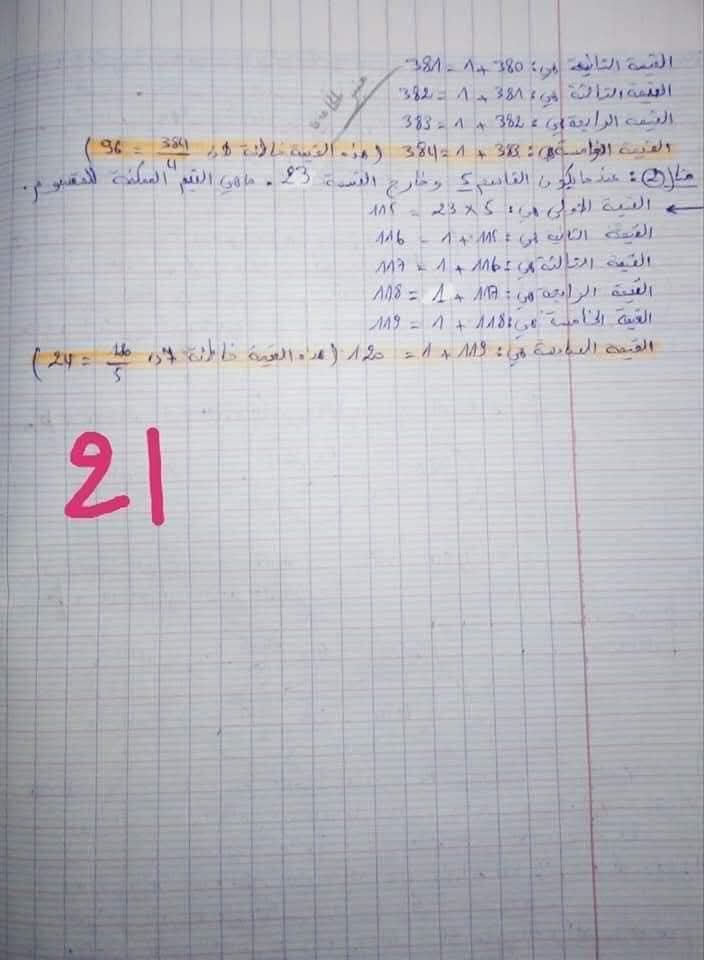 القيمة الثانية هي: 380 + 1 = 381
القيمة الثالثة هي: 381 + 1 = 382
القيمة الرابعة هي: 382 + 1 = 383
القيمة الخامسة هي: 383 + 1 = 384 (هذه القيمة خاطئة لأن 384/4 = 96)
مثال ②: عندما يكون القاسم 5 و خارج القسمة 23. ما هي القيم الممكنة للمقسوم.
← القيمة الأولى هي: 5 × 23 = 115
القيمة الثانية هي: 115 + 1 = 116
القيمة الثالثة هي: 116 + 1 = 117
القيمة الرابعة هي: 117 + 1 = 118
القيمة الخامسة هي: 118 + 1 = 119
القيمة السادسة هي: 119 + 1 = 120 (هذه القيمة خاطئة لأن 120/5 = 24)
21